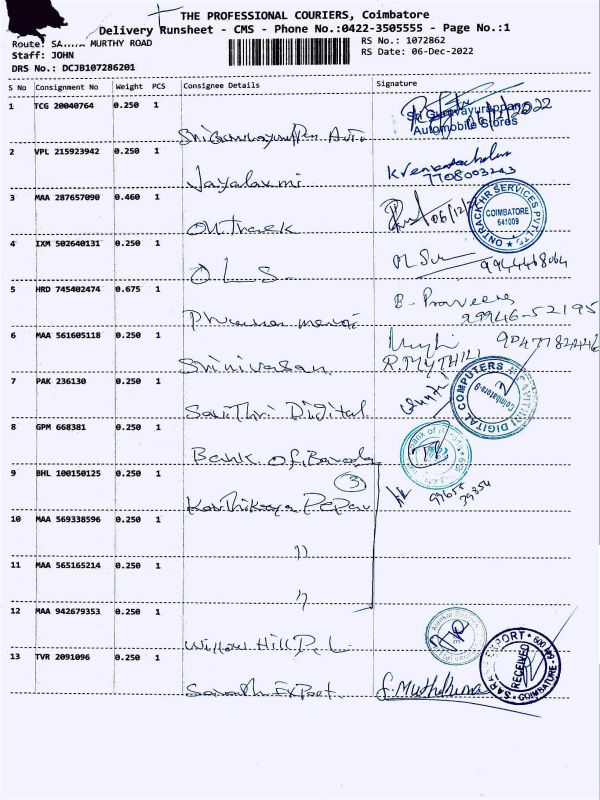 THE PROFESSIONAL COURIERS, Coimbatore
Delivery Runsheet - CMS - Phone No.:0422-3505555 - Page No.:1
Route: MURTHY ROAD
Staff: JOHN
DRS No.: DCJB107286201
RS No.: 1072862
RS Date: 06-Dec-2022
S No Consignment No Weight PCS Consignee Details Signature
1 TCG 20040764 0.250 1
Sri Guruvayurappan
Automobile Stores
2 VPL 215923942 0.250 1 Jayalaxmi
7708003243
3 MAA 287657090 0.460 1 Ontrack 06/12/22
ONTRACK HR SERVICES PVT LTD
COIMBATORE
641009
4 IXM 502640131 0.250 1 O L S. 9944468064
5 HRD 745402474 0.675 1 B. Praveena
99946-52195
6 MAA 561605118 0.250 1 Srinivasan R. MYTHILI
7 PAK 236130 0.250 1 Savithri Digital
SAVITHRI DIGITAL COMPUTERS
Coimbatore-9
8 GPM 668381 0.250 1 Bank of Baroda
9 BHL 100150125 0.250 1 Karthikeya Paper
3
99655
29854
10 MAA 569338596 0.250 1 "
11 MAA 565165214 0.250 1 "
12 MAA 942679353 0.250 1 Willow Hill P. L
13 TVR 2091096 0.250 1 Sarath Export S. Muthukumar
EXPORT
RECEIVED
COIMBATORE - 641 009